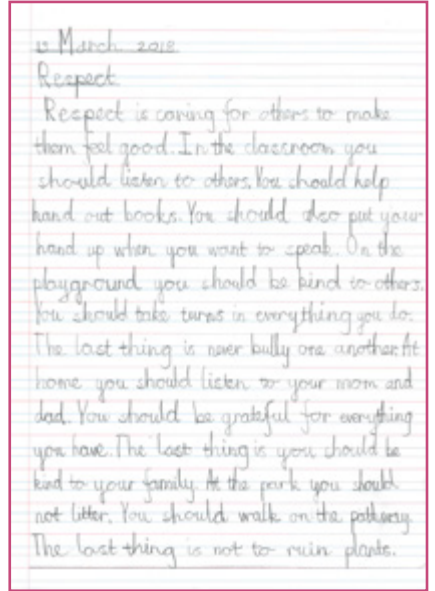 March 2018
Respect
Respect is caring for others to make
them feel good. In the classroom you
should listen to others. You should help
hand out books. You should also put your
hand up when you want to speak. On the
playground you should be kind to others.
You should take turns in everything you do.
The last thing is never bully one another. At
home you should listen to your mom and
dad. You should be grateful for everything
you have. The last thing is you should be
kind to your family. At the park you should
not litter. You should walk on the pathway.
The last thing is not to ruin plants.